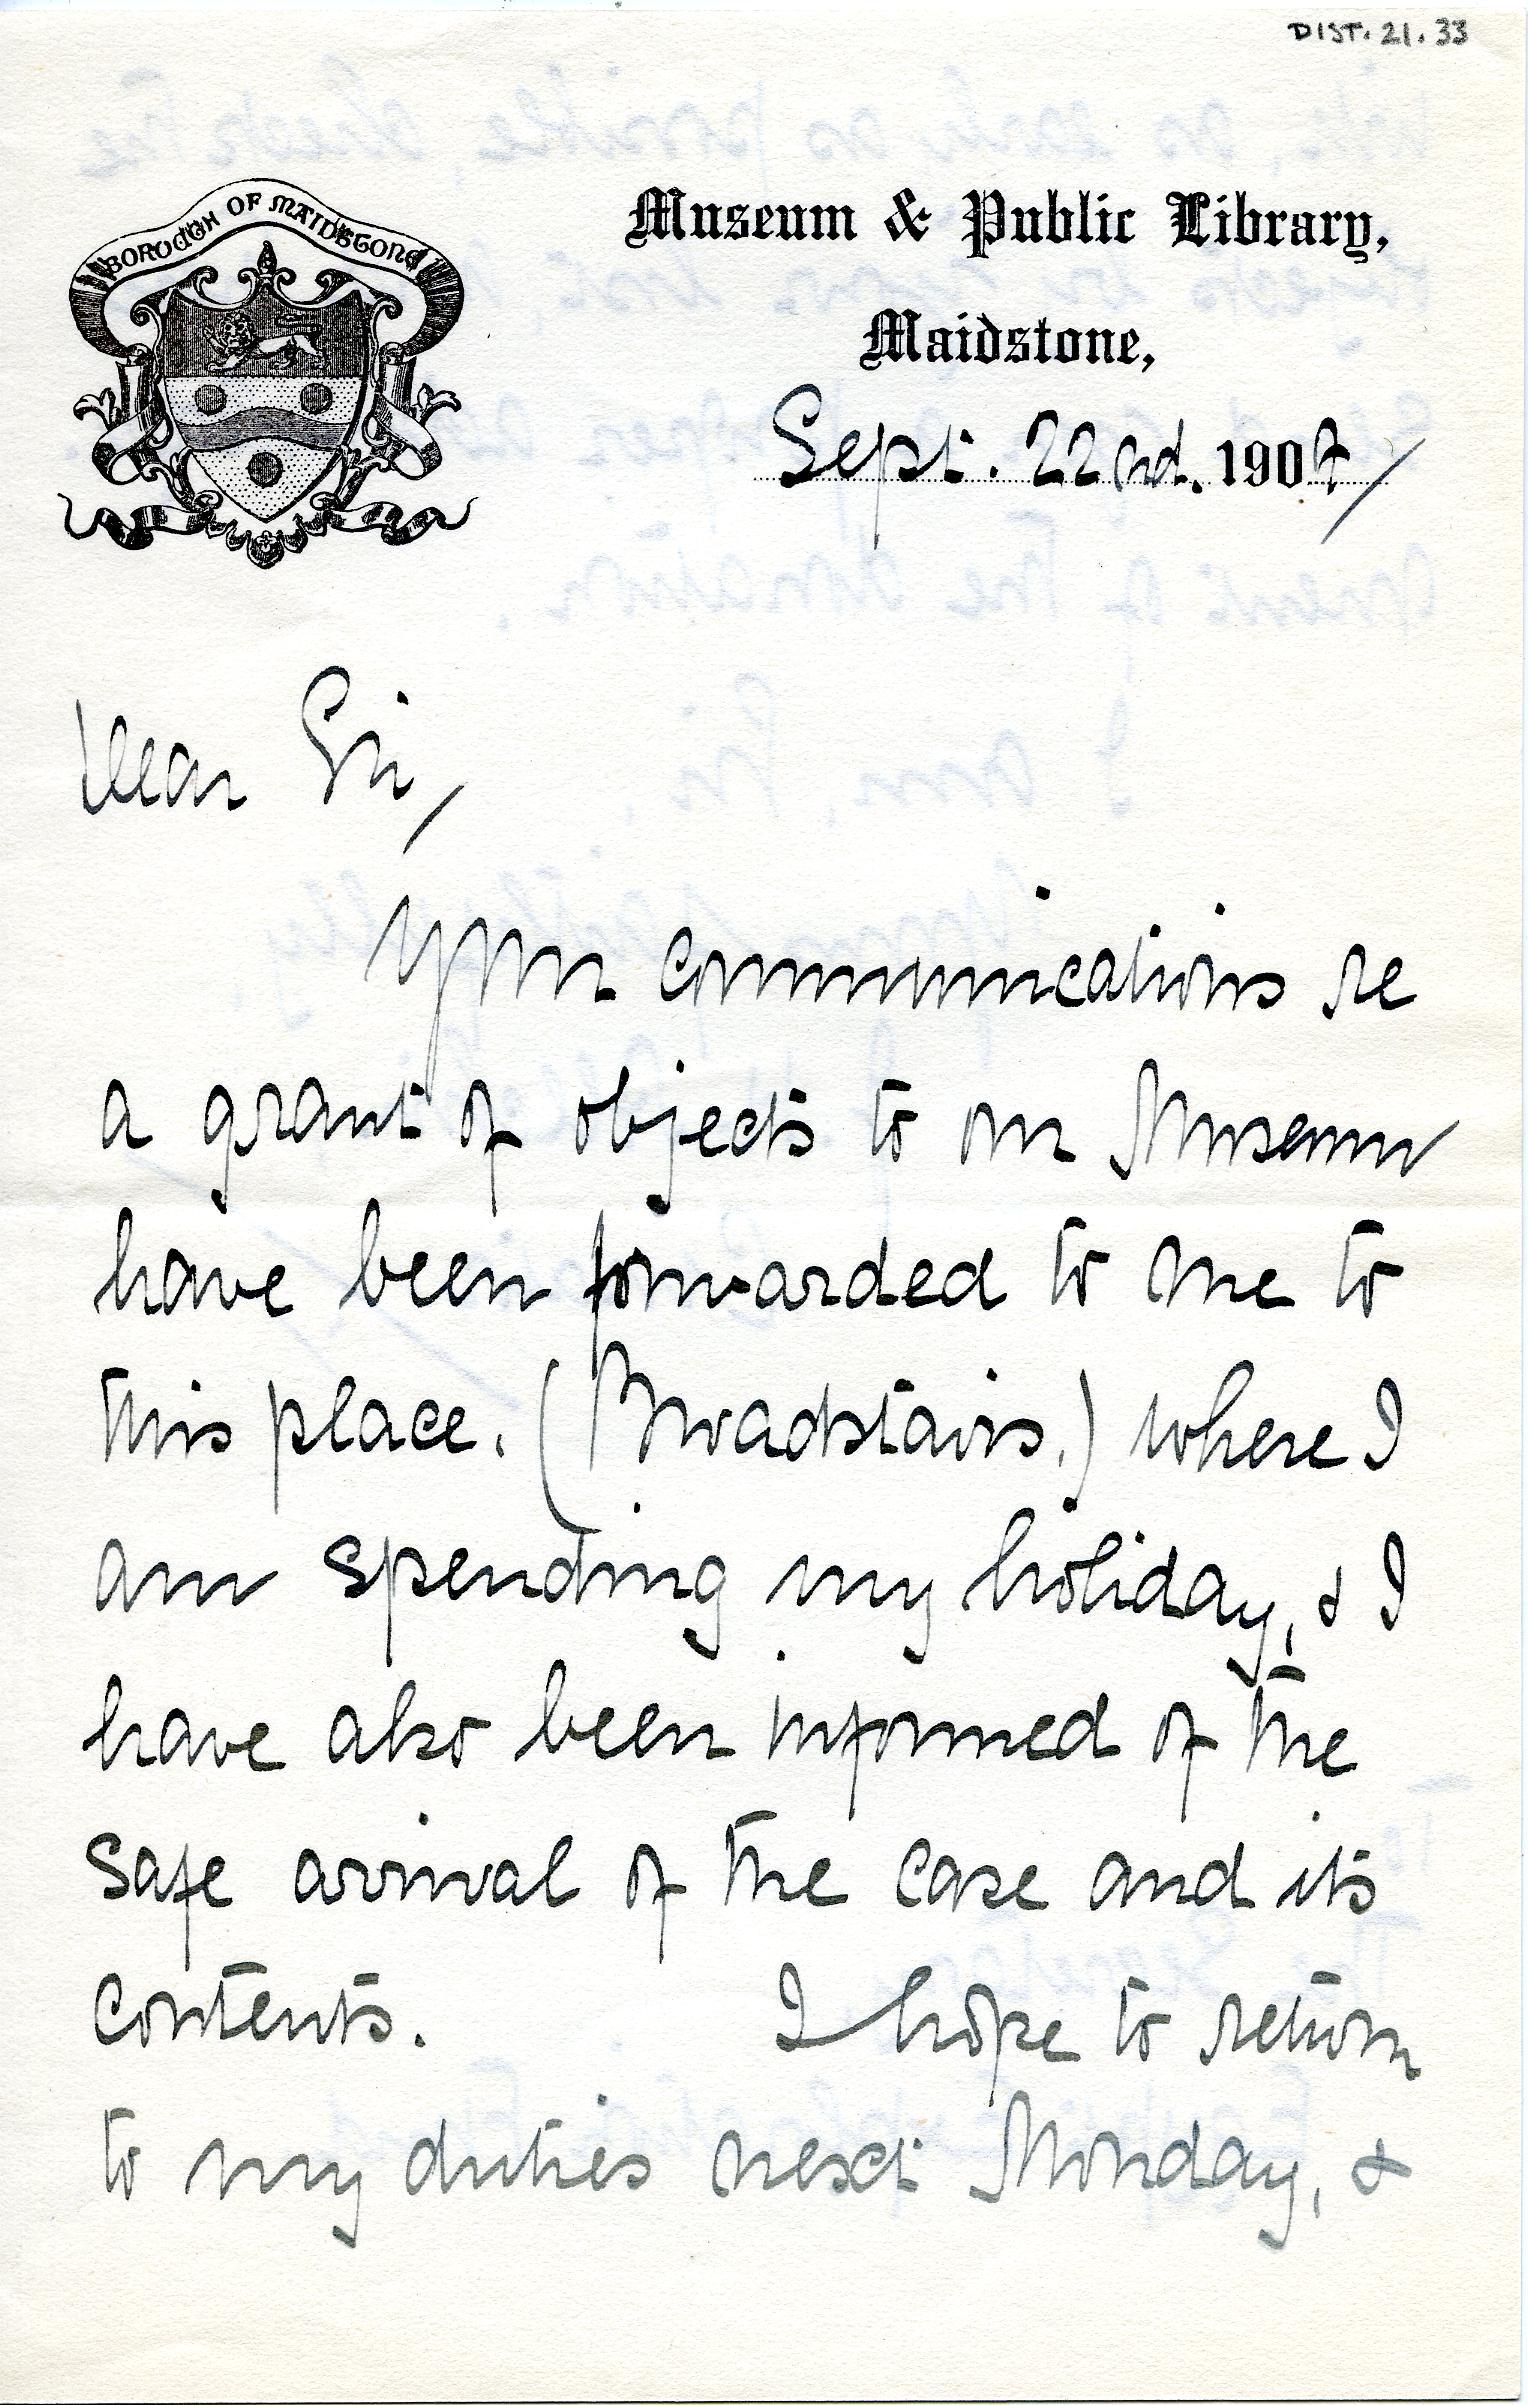 DIST. 21. 33
BOROUGH OF MAIDSTONE
Museum & Public Library,
Maidstone,
Sept. 22nd. 190
Dear Sir,
Your communications re
a grant of objects to our Museum
have been forwarded to me to
this place. (Broadstairs.) where I
am spending my holiday, & I
have also been informed of the
safe arrival of the case and its
contents. I hope to return
to my duties next Monday, &